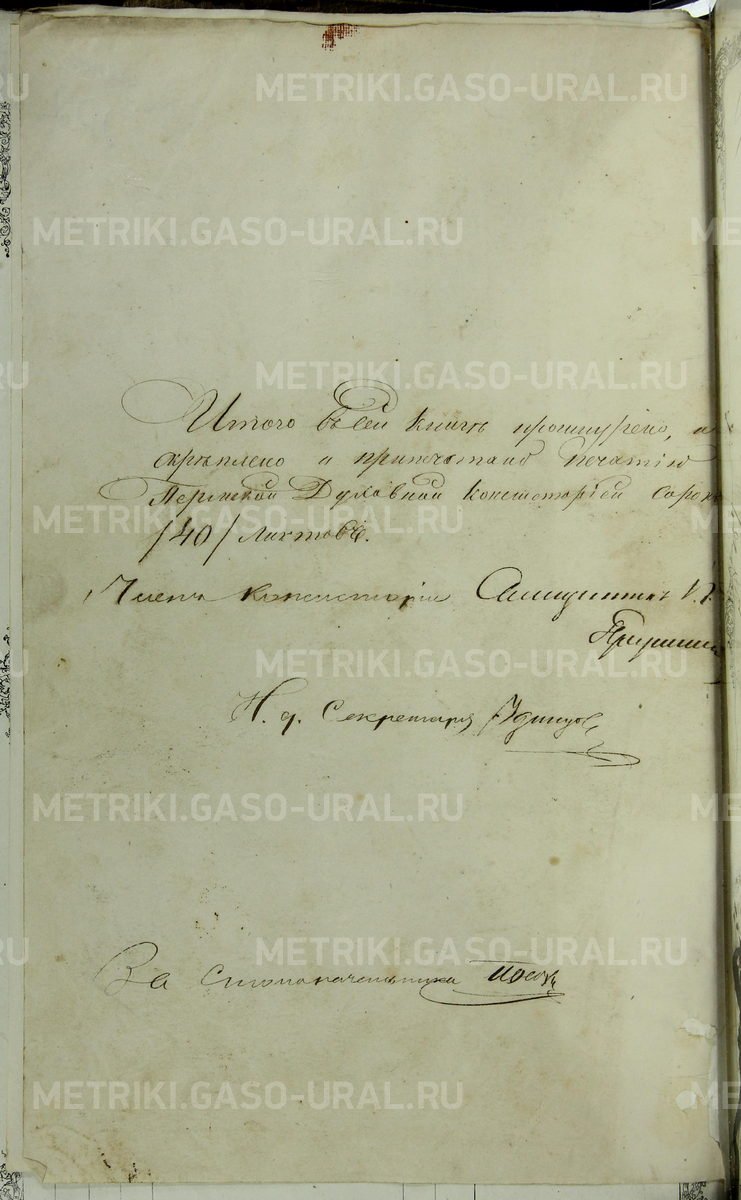 Итого въ сей книгѣ прошнуровано, и
скрѣплено и припечатано печатію
Пермской Духовной Консисторіей сорокъ
/40/ листовъ.
Членъ Консисторіи
И. д. Секретаря
За Столоначальника
METRIKI.GASO-URAL.RU
METRIKI.GASO-URAL.RU
METRIKI.GASO-URAL.RU
METRIKI.GASO-URAL.RU
METRIKI.GASO-URAL.RU
METRIKI.GASO-URAL.RU
METRIKI.GASO-URAL.RU
METRIKI.GASO-URAL.RU